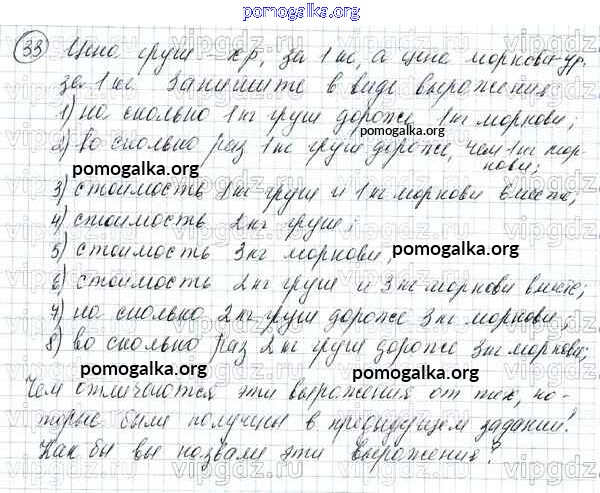 pomogalka.org
33) Цена груш х р. за 1 кг, а цена моркови ур.
за 1 кг. Запишите в виде выражения
1) на сколько 1 кг груш дороже 1 кг моркови;
2) во сколько раз 1 кг груш дороже, чем 1 кг мор-
нови;
3) стоимость 1 кг груш и 1 кг моркови вместе;
4) стоимость 2 кг груш;
5) стоимость 3 кг моркови;
6) стоимость 2 кг груш и 3 кг моркови вместе;
7) на сколько 2 кг груш дороже 3 кг моркови;
8) во сколько раз 2 кг груш дороже 3 кг моркови;
Чем отличаются эти выражения от тех, ко-
торые были получены в предыдущем задании?
Как бы вы назвали эти выражения?
pomogalka.org
pomogalka.org
pomogalka.org
pomogalka.org
pomogalka.org
pomogalka.org
pomogalka.org